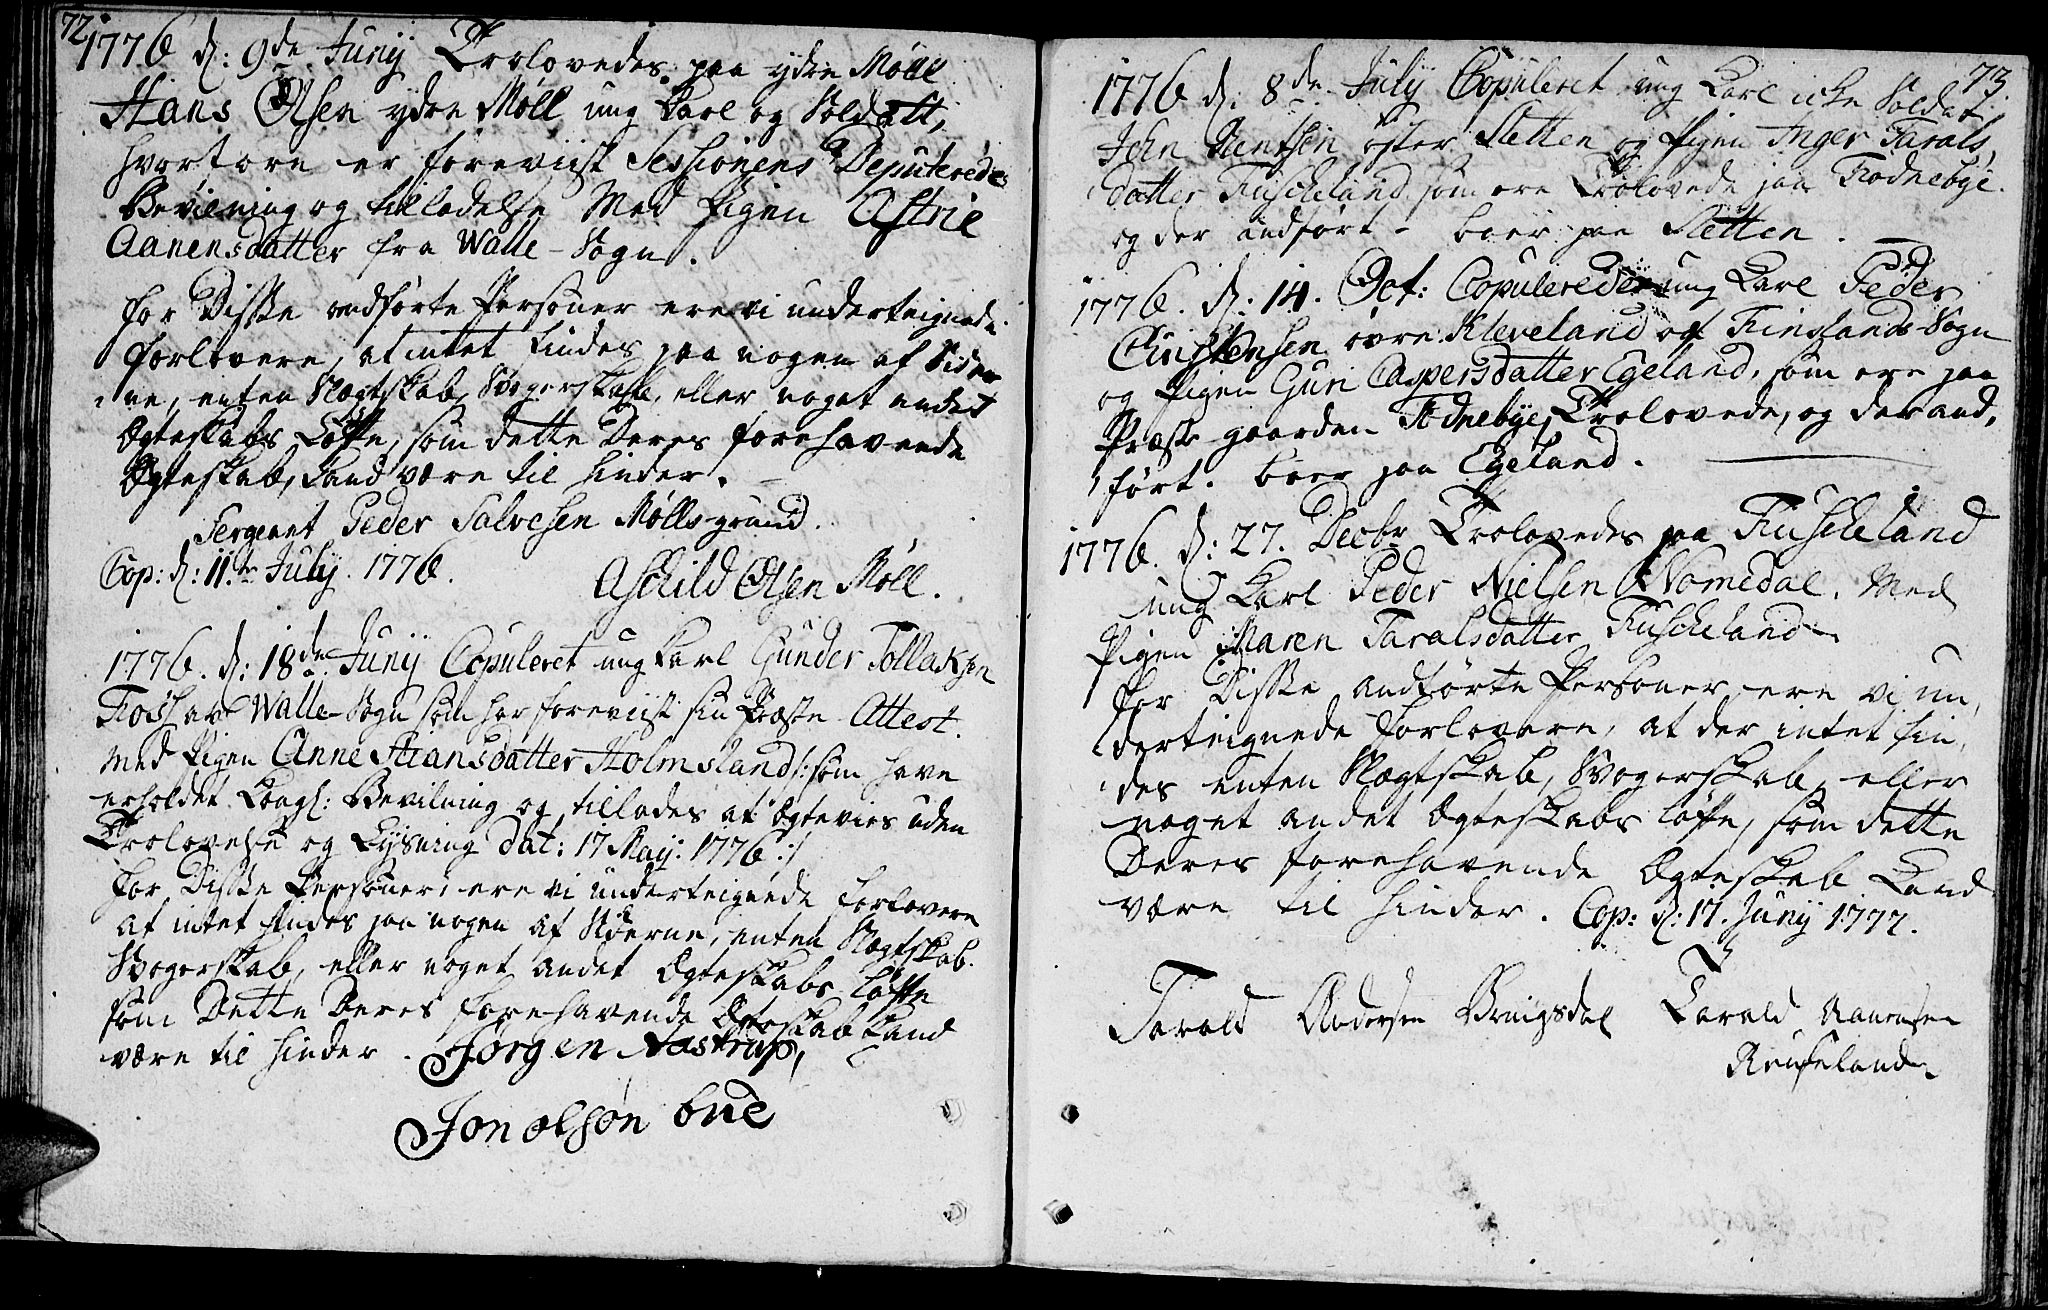 72.
1776 d: 9de Junij Trolovedes paa ydre Møll
Hans Olsen ydre Møll ung Karl og Soldatt,
hvortore er foreviist Sessionens Deputeredes
Bevilning og tilladelse Med Pigen Astrie
Aanensdatter fra Walle-Sogn.
for Disse andførte Personer ere vi underteignede
forlovere, at intet findes paa nogen af Sider
ne, enten Slægtskab, Svogerskab, eller noget andet
Ægteskabs Løfte, som dette Deres forehavende
Ægteskab, kand være til hinder.
Sergeant Peder Salvesen Mølls-grund.
Cop: d: 11te July. 1776. Aschild Olsen Møll.
1776. d: 18de Junij Copuleret ung Karl Gunder Tollaksen
Foss av Walle-Sogn som har foreviist sin Præste Attest.
med Pigen Anne Stiansdatter Holmsland /: som have
erholdet Kongl: Bevilning og tillades at Ægtevies uden
Trolovelse og Lysning dat: 17 Maij: 1776 :/
for Disse Personer ere vi underteignede forlovere
at intet findes paa nogen af Siderne, enten Slægtskab.
Svogerskab, eller noget andet Ægteskabs Løfte
som Dette Deres forehavende Ægteskab kand
være til hinder. Jørgen Aastrup,
Jon olsøn bue
73.
1776 d. 8de July Copuleret ung Karl icke Soldat
John Jentsen øster Sletten og Pigen Inger Tarals,
datter Fuskeland som ere Trolovede paa Fodnebye.
og der andført - boer paa Sletten.
1776. d: 14. Oct: Copuleredes ung Karl Peder
Christensen øvre Kleveland af Finslands-Sogn
og Pigen Guri Caspersdatter Egeland, som ere paa
Præste gaarden Fodnebye, Trolovede, og der and,
ført. boer paa Egeland.
1776. d: 27. Decbr Trolovedes paa Fuskeland
ung Karl Peder Nielsen Nomedal. Med
Pigen Maren Taralsdatter Fuskeland
for Disse andførte Personer ere vi un,
derteignede Forlovere, at der intet fin,
des enten Slægtskab, Svogerskab, eller
noget andet Ægteskabs løfte, som dette
Deres forehavende Ægteskab kand
være til hinder. Cop: d: 17. Junij 1777.
Tarald Andersen Tarald Aanensen